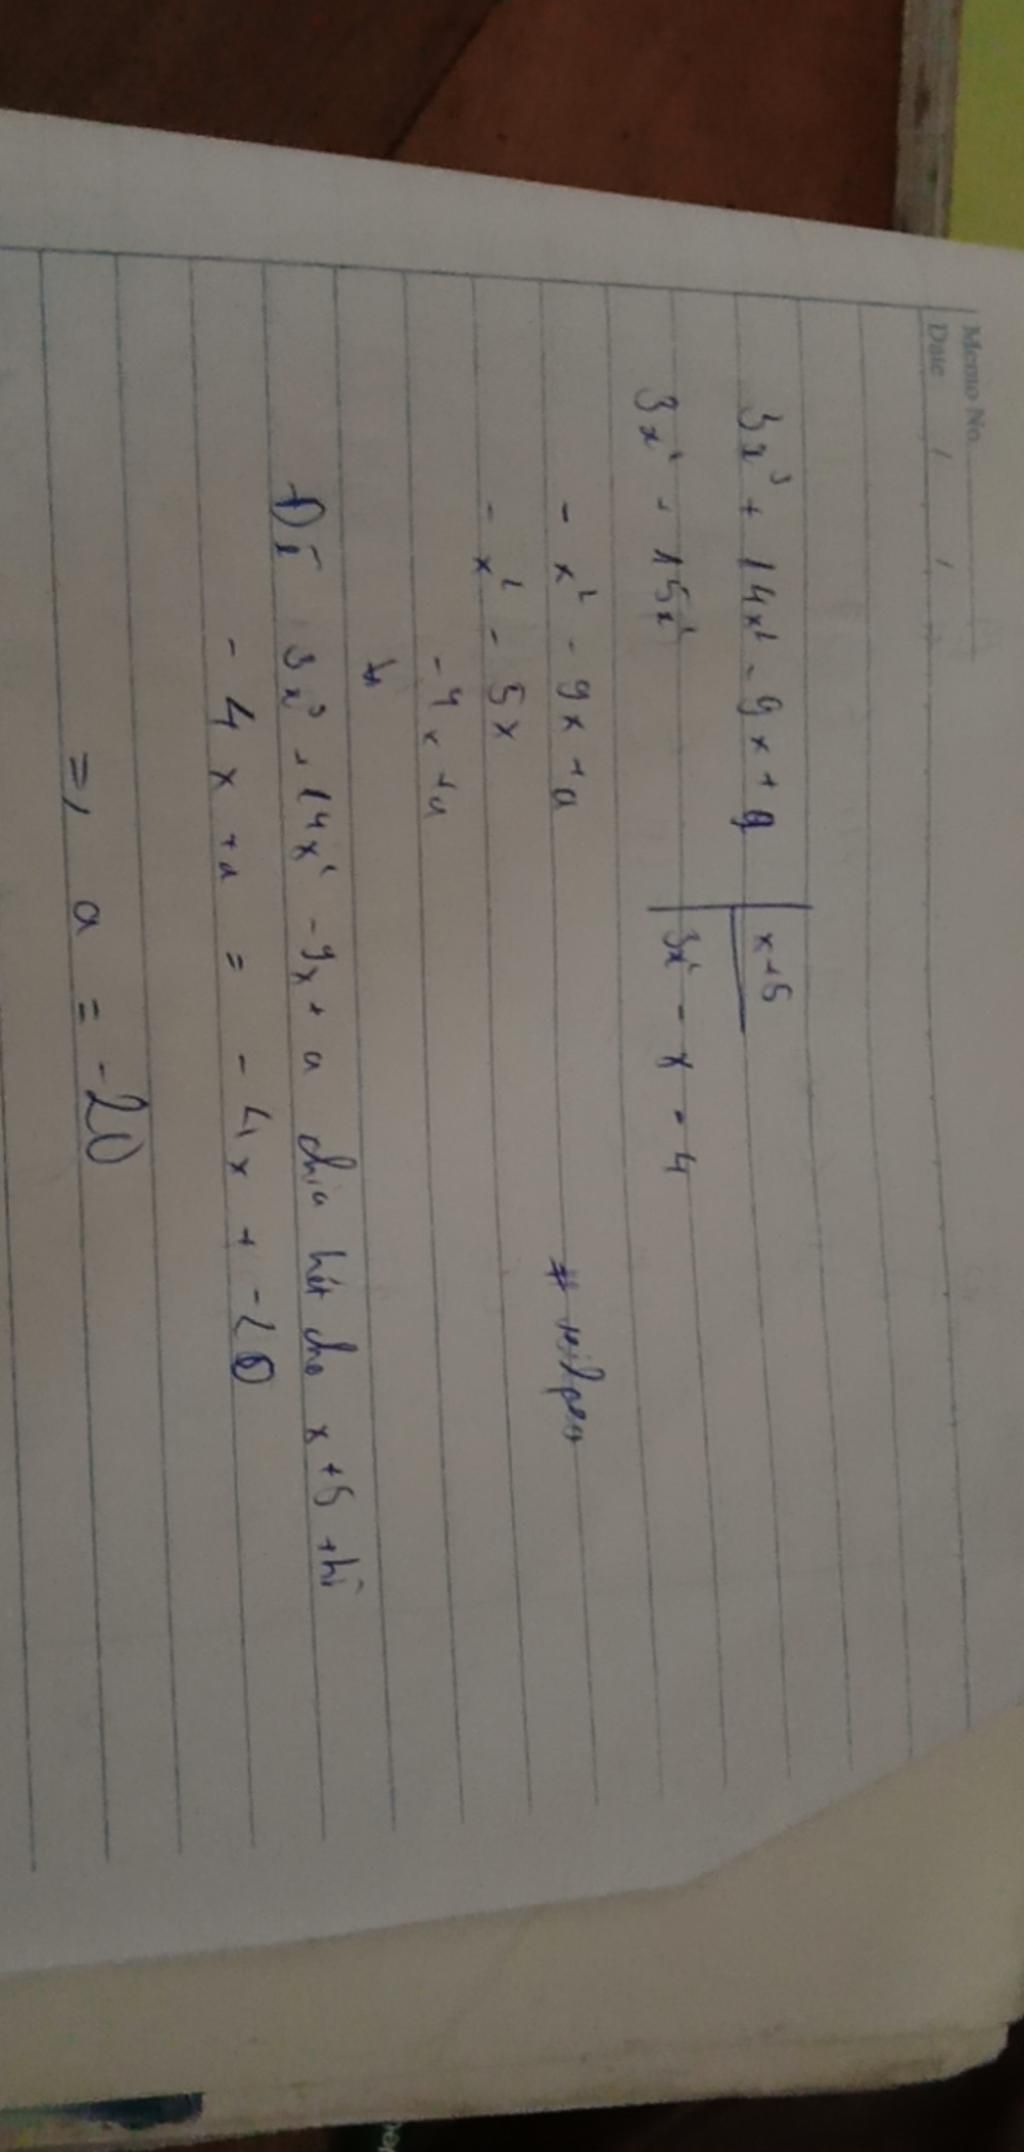 Memo No.
Date / /
3x³ + 14x² - 9x + a | x+5
3x² + 15x² | 3x² - x - 4
- x² - 9x + a
- x² - 5x
- 4x + a
Để 3x³ + 14x² - 9x + a chia hết cho x+5 thì
- 4x + a = - 4x + -20
=> a = -20